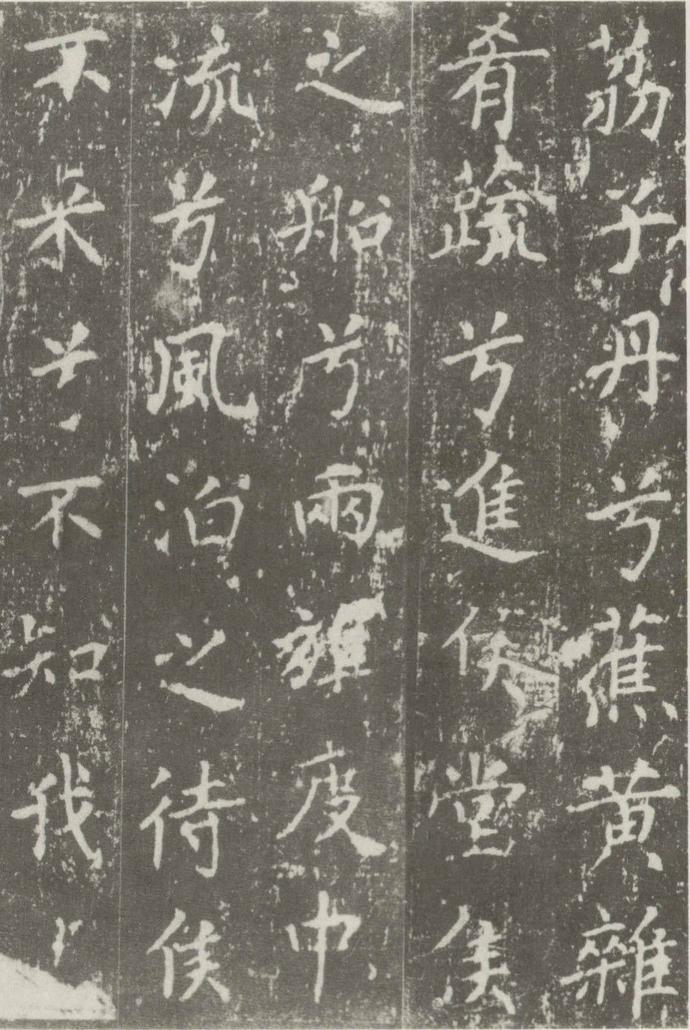 荔子丹兮蕉黄雜
肴蔬兮進侯堂侯
之船兮兩度中
流兮風泊之待侯
不来兮不知我